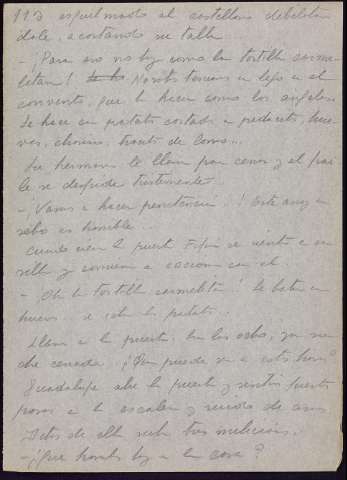 113 esquilmado al castellano debilitán
dole, acortando su talla
- ¡Para eso no hay como la tortilla carme-
litana! Nosotros tenemos un lego en el
convento, que la hacen como los ángeles
Se hace con patatas cortadas a pedacitos, hue-
vos, chorizo, trocitos de lomo...
Su hermana le llama para cenar y el frai
le se despide tristemente.
- ¡Vamos a hacer penitencia! Este arroz en
es horrible...
Cuando cierra la puerta se sienta en su
silla y comienza a con el.
- Oh la tortilla carmelitana! Se baten
huevos.. se la patata...
Llaman a la puerta. Son las ocho, ya no
che cerrada. ¿Quien puede ser a estas horas?
Guadalupe abre la puerta y sentimos fuertes
pasos en la escalera y ruido de armas
Detrás de ella suben tres milicianos.
- ¿Que hombres hay en la casa?